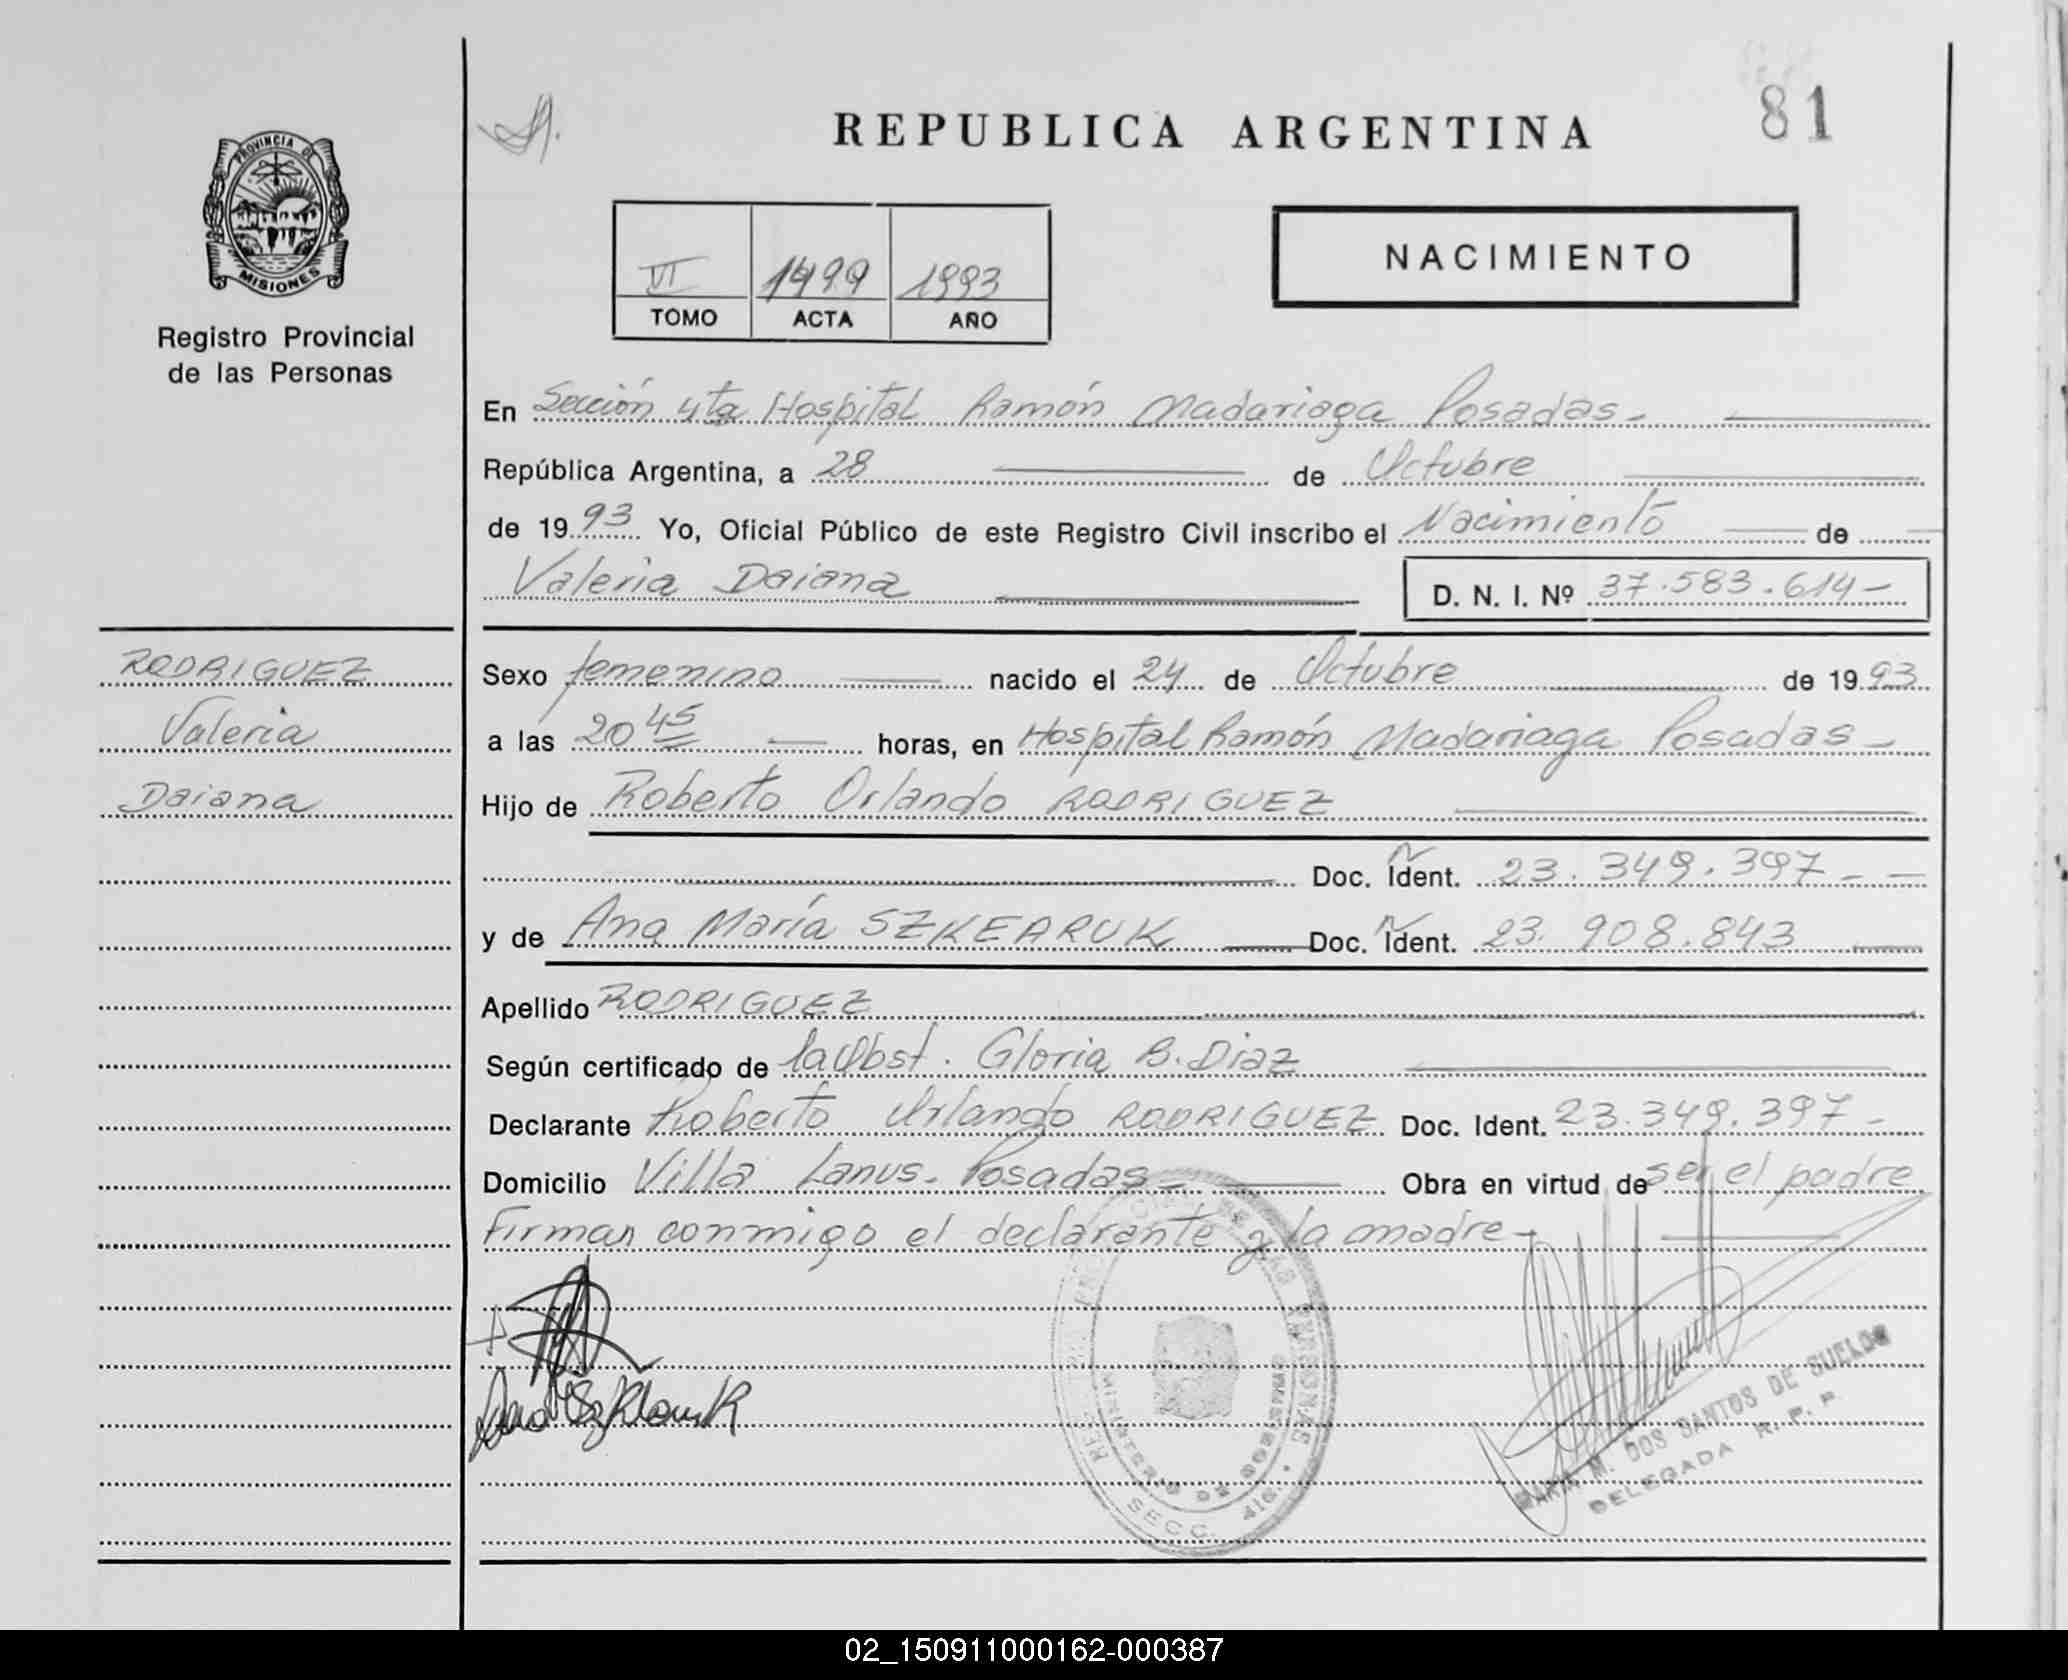 81
REPUBLICA ARGENTINA
PROVINCIA DE
MISIONES
Registro Provincial
de las Personas
NACIMIENTO
VI 1499 1993
TOMO ACTA AÑO
En Sección 4ta Hospital Ramón Madariaga Posadas-
República Argentina, a 28 de Octubre
de 1993 Yo, Oficial Público de este Registro Civil inscribo el Nacimiento de
Valeria Daiana D. N. I. Nº 37.583.614-
RODRIGUEZ
Valeria
Daiana
Sexo femenino nacido el 24 de Octubre de 1993
a las 20 45 horas, en Hospital Ramón Madariaga Posadas-
Hijo de Roberto Orlando RODRIGUEZ
Doc. Ident. 23.349.397--
y de Ana María SZKEARUK Doc. Ident. 23.908.843
Apellido RODRIGUEZ
Según certificado de la Obst. Gloria B. Diaz
Declarante Roberto Orlando RODRIGUEZ Doc. Ident. 23.349.397-
Domicilio Villa Lanus-Posadas- Obra en virtud de ser el padre
Firman conmigo el declarante y la madre-
MINISTERIO DE GOBIERNO
SECC. 4ta.
MARIA M. DOS SANTOS DE SUELDO
DELEGADA R. P. P.
02_150911000162-000387